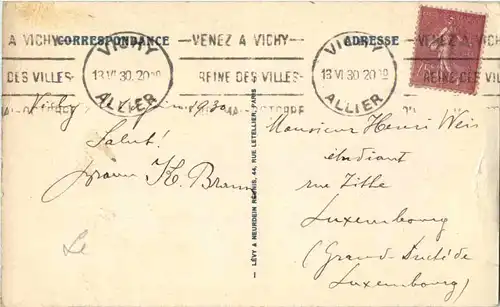 CORRESPONDANCE
ADRESSE
A VICHY
VICHY
VENEZ A VICHY
VICHY
VENEZ A VICHY
DES VILLES
13 VI 30. 20
REINE DES VILLES
13 VI 30. 20
REINE DES VILLES
ALLIER
ALLIER
Vichy 1930
Salut!
K. Braun
Monsieur Henri Weis
étudiant
rue Zithe
Luxembourg
(Grand-Duché de
Luxembourg)
LÉVY & NEURDEIN RÉUNIS, 44, RUE LETELLIER, PARIS